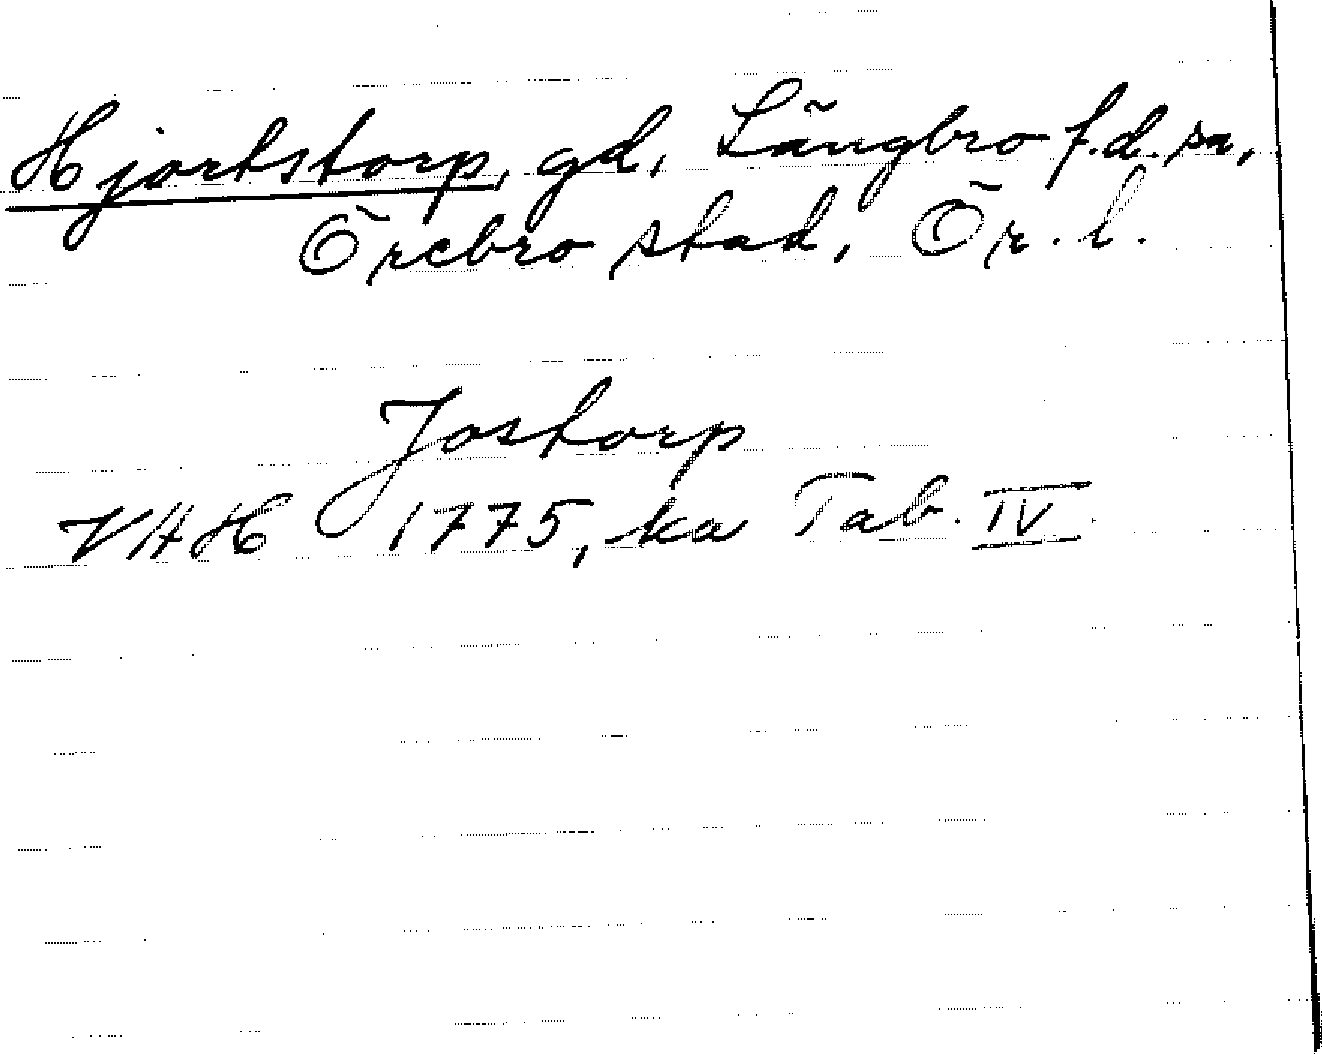 Hjortstorp, gd, Längbro f.d. sn,
Örebro stad, Ör. l.
Jostorp
VHH 1775, ka Tab. IV